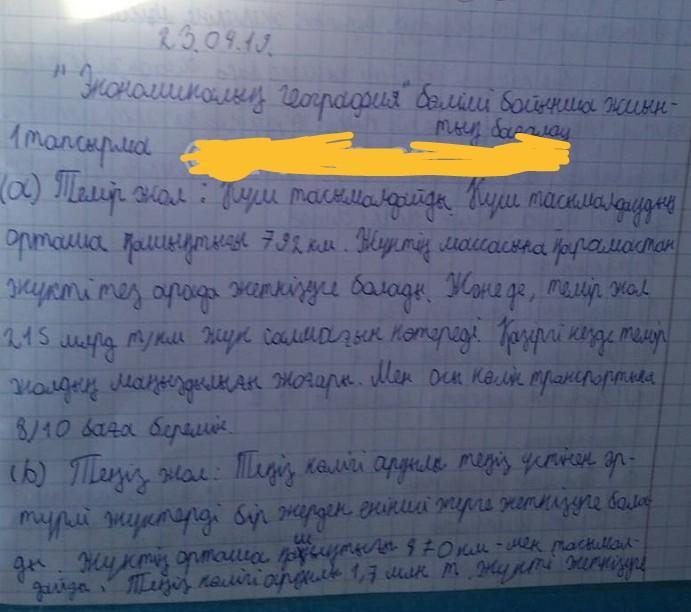 23.04.19.
"Экономикалық география" бөлімі бойынша жиын-
тық бағалау
1 тапсырма
(a) Темір жол: Күш тасымалдайды. Күш тасымалдаудың
орташа қашықтығы 792 км. Жүктің массасына қарамастан
жүкті тез арада жеткізуге болады. Және де, темір жол
215 млрд т/км жүк салмағын көтереді. Қазіргі кезде темір
жолдың маңыздылығы жоғары. Мен осы көлік транспортына
8/10 баға беремін.
(b) Теңіз жол: Теңіз көлігі арқылы теңіз үстінен әр-
түрлі жүктерді бір жерден екінші жерге жеткізуге бола
ды. Жүктің орташа қашықтығы 970 км-мен тасымал-
дайды. Теңіз көлігі арқылы 1,7 млн т. жүкті жеткізуге